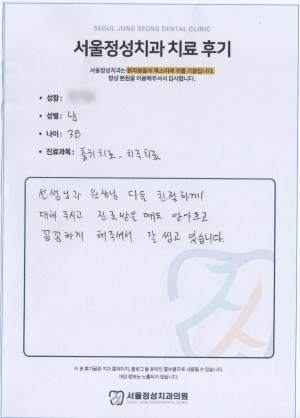 SEOUL JUNG SEONG DENTAL CLINIC
서울정성치과 치료 후기
서울정성치과는 환자분들의 목소리에 귀를 기울입니다.
항상 본원을 이용해주셔서 감사합니다.
• 성함 :
• 성별 : 남
• 나이 : 38
• 진료과목 : 충치치료, 치주치료
선생님과 원장님 다들 친절하게
대해 주시고 진료받을 때도 안아프고
꼼꼼하게 해주셔서 잘 씹고 있습니다.
※ 본 후기글은 치과 홈페이지, 블로그 등 온라인 홍보물으로 사용될 수 있습니다.
개인 정보는 노출되지 않습니다.
서울정성치과의원
SEOUL JUNG SEONG DENTAL CLINIC